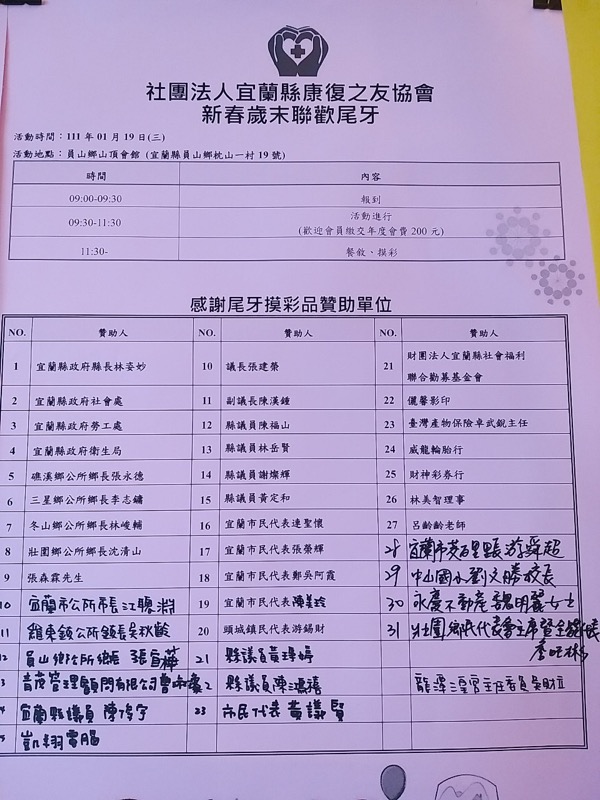 社團法人宜蘭縣康復之友協會
新春歲末聯歡尾牙
活動時間：111 年 01 月 19 日(三)
活動地點：員山鄉山頂會館 (宜蘭縣員山鄉枕山一村 19 號)
時間 內容
09:00-09:30 報到
09:30-11:30 活動進行
(歡迎會員繳交年度會費 200 元)
11:30- 餐敘、摸彩
感謝尾牙摸彩品贊助單位
NO. 贊助人 NO. 贊助人 NO. 贊助人
1 宜蘭縣政府縣長林姿妙 10 議長張建榮 21 財團法人宜蘭縣社會福利
聯合勸募基金會
2 宜蘭縣政府社會處 11 副議長陳漢鍾 22 儷馨影印
3 宜蘭縣政府勞工處 12 縣議員陳福山 23 臺灣產物保險卓武銳主任
4 宜蘭縣政府衛生局 13 縣議員林岳賢 24 威龍輪胎行
5 礁溪鄉公所鄉長張永德 14 縣議員謝燦輝 25 財神彩券行
6 三星鄉公所鄉長李志鏞 15 縣議員黃定和 26 林美智理事
7 冬山鄉公所鄉長林峻輔 16 宜蘭市民代表連聖懷 27 呂齡齡老師
8 壯圍鄉公所鄉長沈清山 17 宜蘭市民代表張榮輝 28 宜蘭市 里長游舜超
9 張森霖先生 18 宜蘭市民代表鄭吳阿霞 29 中山國小劉文勝校長
10 宜蘭市公所市長江聰淵 19 宜蘭市民代表陳美玲 30 永慶不動產 明麗女士
11 羅東鎮公所鎮長吳秋齡 20 頭城鎮民代表游錫財 31 壯圍鄉民代表會主席
12 員山鄉公所鄉長 張宜樺 21 縣議員黃琤婷 李旺林
3 管理顧問有限公司 2 縣議員陳鴻禧 主任委員吳財立
4 宜蘭縣議員 陳俊宇 23 市民代表 黃議賢
5 凱翔電腦